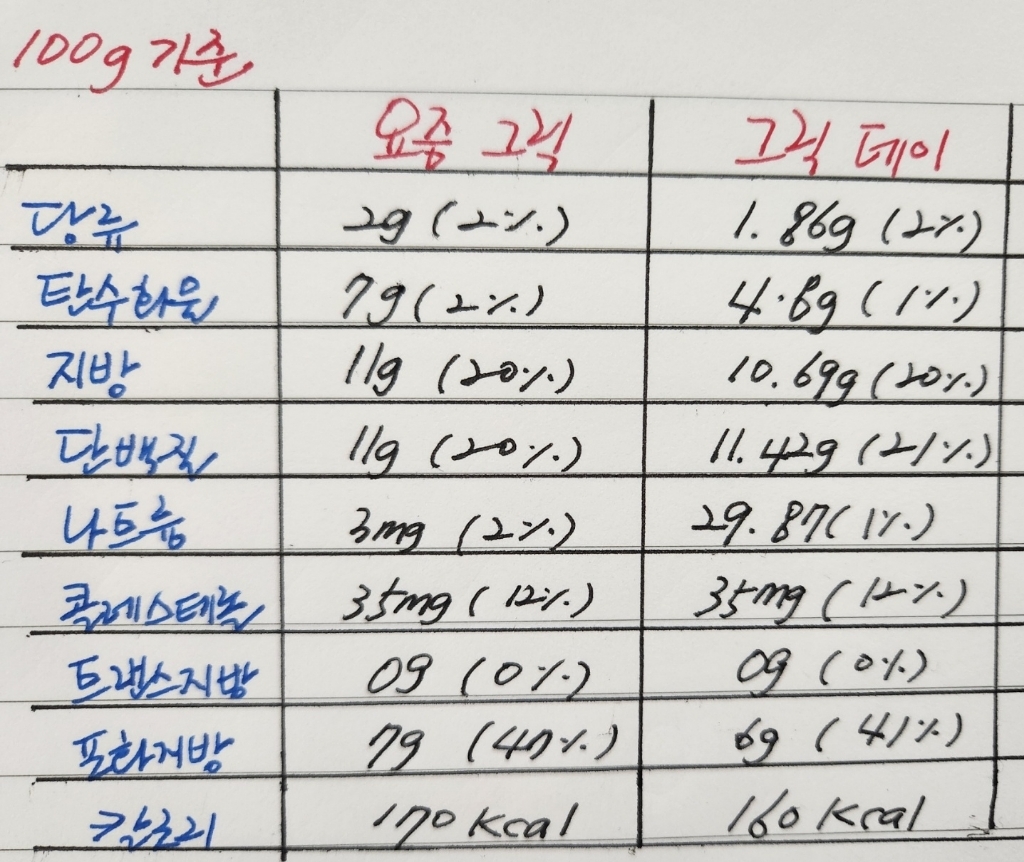 100g 기준
요즘 그릭 그릭 데이
당류 2g (2%) 1.86g (2%)
탄수화물 7g (2%) 4.8g (1%)
지방 11g (20%) 10.69g (20%)
단백질 11g (20%) 11.42g (21%)
나트륨 3mg (2%) 29.87 (1%)
콜레스테롤 35mg (12%) 35mg (12%)
트랜스지방 0g (0%) 0g (0%)
포화지방 7g (47%) 6g (41%)
칼로리 170 kcal 160 kcal